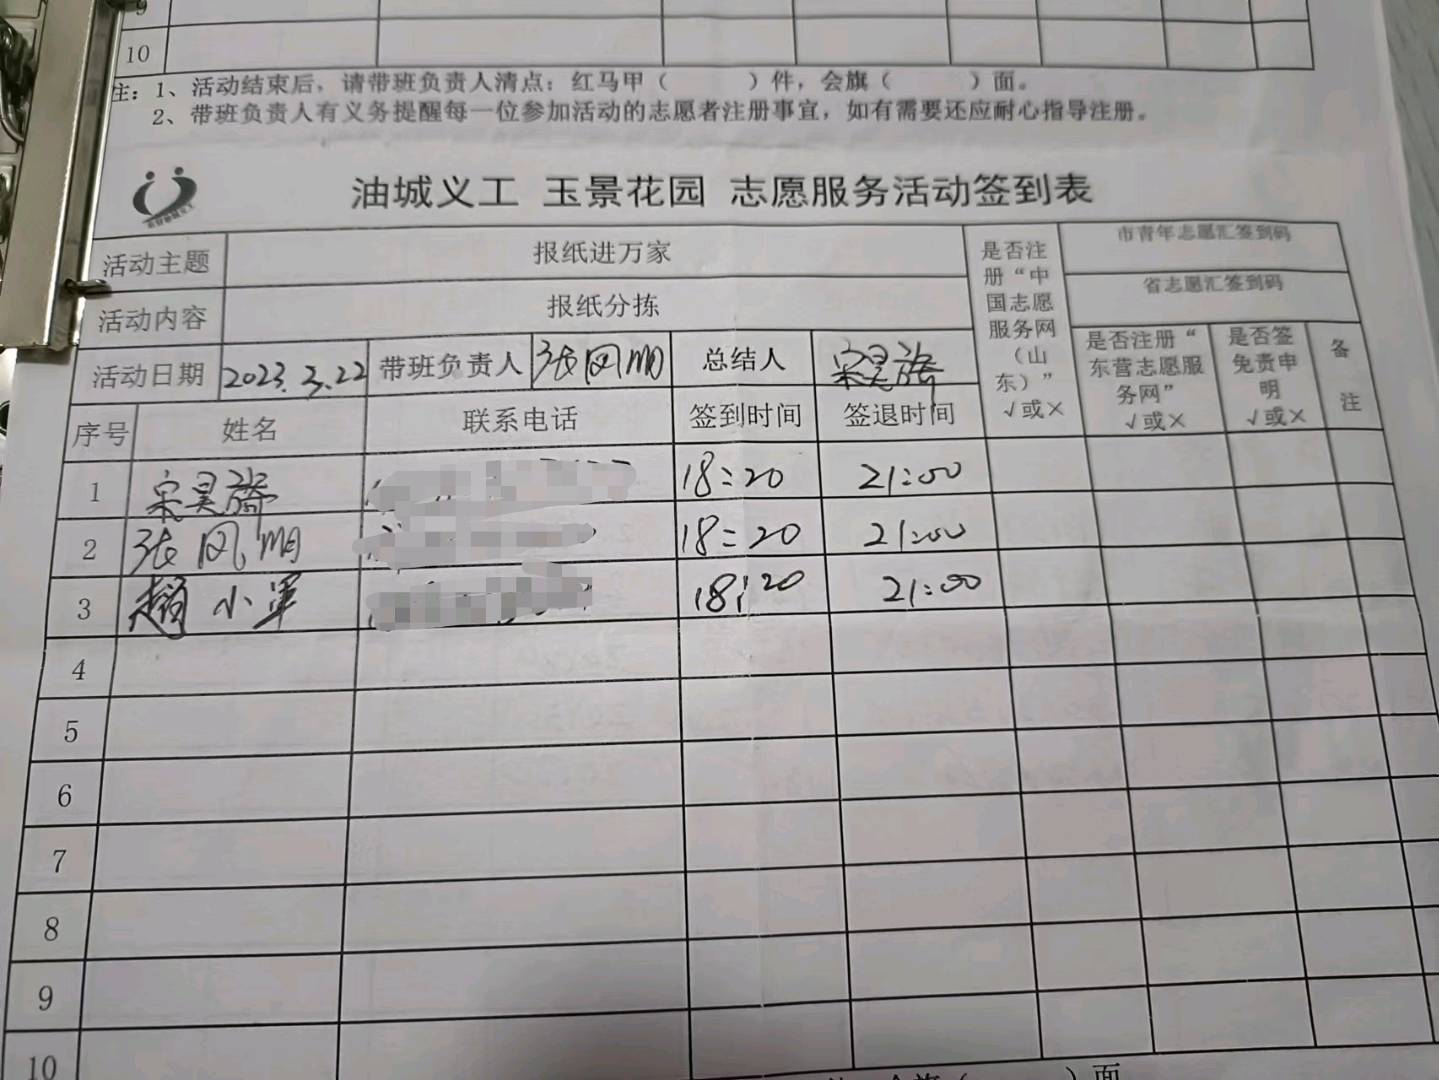 9
10
注：1、活动结束后，请带班负责人清点：红马甲（ ）件，会旗（ ）面。
2、带班负责人有义务提醒每一位参加活动的志愿者注册事宜，如有需要还应耐心指导注册。
油城义工 玉景花园 志愿服务活动签到表
活动主题 报纸进万家
活动内容 报纸分拣
活动日期 2023.3.22 带班负责人 张凤顺 总结人 宋昊
是否注册“中国志愿服务网（山东）” √或×
市青年志愿汇签到码
省志愿汇签到码
是否注册“东营志愿服务网” √或×
是否签免责申明 √或×
备注
序号 姓名 联系电话 签到时间 签退时间
1 宋昊 18:20 21:00
2 张凤顺 18:20 21:00
3 赵小军 18:20 21:00
4
5
6
7
8
9
10
（ ）面